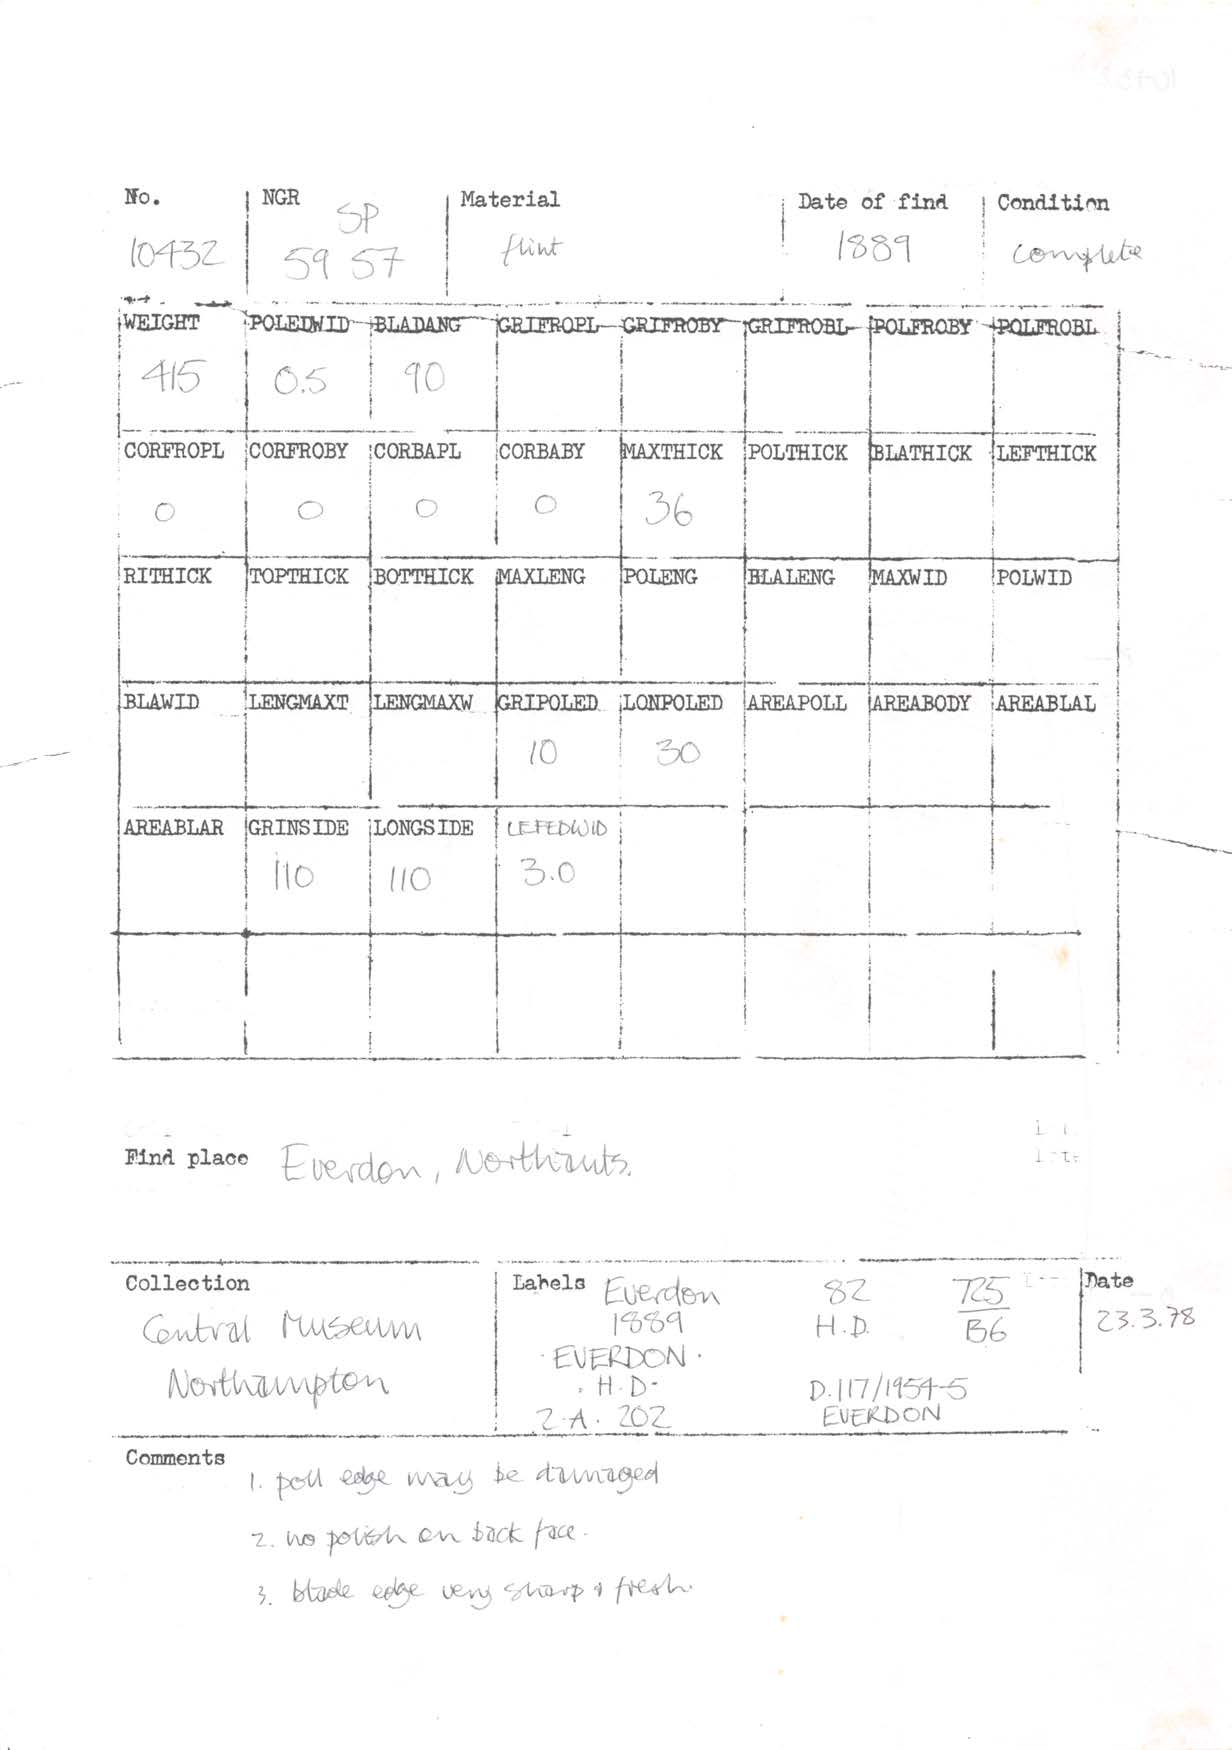 No. NGR Material Date of find Condition
SP
10432 59 57 flint 1889 complete
WEIGHT POLEDWID BLADANG GRIFROPL GRIFROBY GRIFROBL POLFROBY POLFROBL
415 0.5 90
CORFROPL CORFROBY CORBAPL CORBABY MAXTHICK POLTHICK BLATHICK LEFTHICK
0 0 0 0 36
RITHICK TOPTHICK BOTTHICK MAXLENG POLENG BLALENG MAXWID POLWID
BLAWID LENGMAXT LENGMAXW GRIPOLED LONPOLED AREAPOLL AREABODY AREABLAL
10 30
AREABLAR GRINSIDE LONGSIDE LEFEDWID
110 110 3.0
Find place Everdon, Northants.
Collection
Central Museum
Northampton
Labels Everdon
1889
· EVERDON ·
· H.D·
2.A. 202
82
H.D.
T25
B6
D.117/1954-5
EVERDON
Date
23.3.78
Comments
1. poll edge may be damaged
2. no polish on back face.
3. blade edge very sharp & fresh.